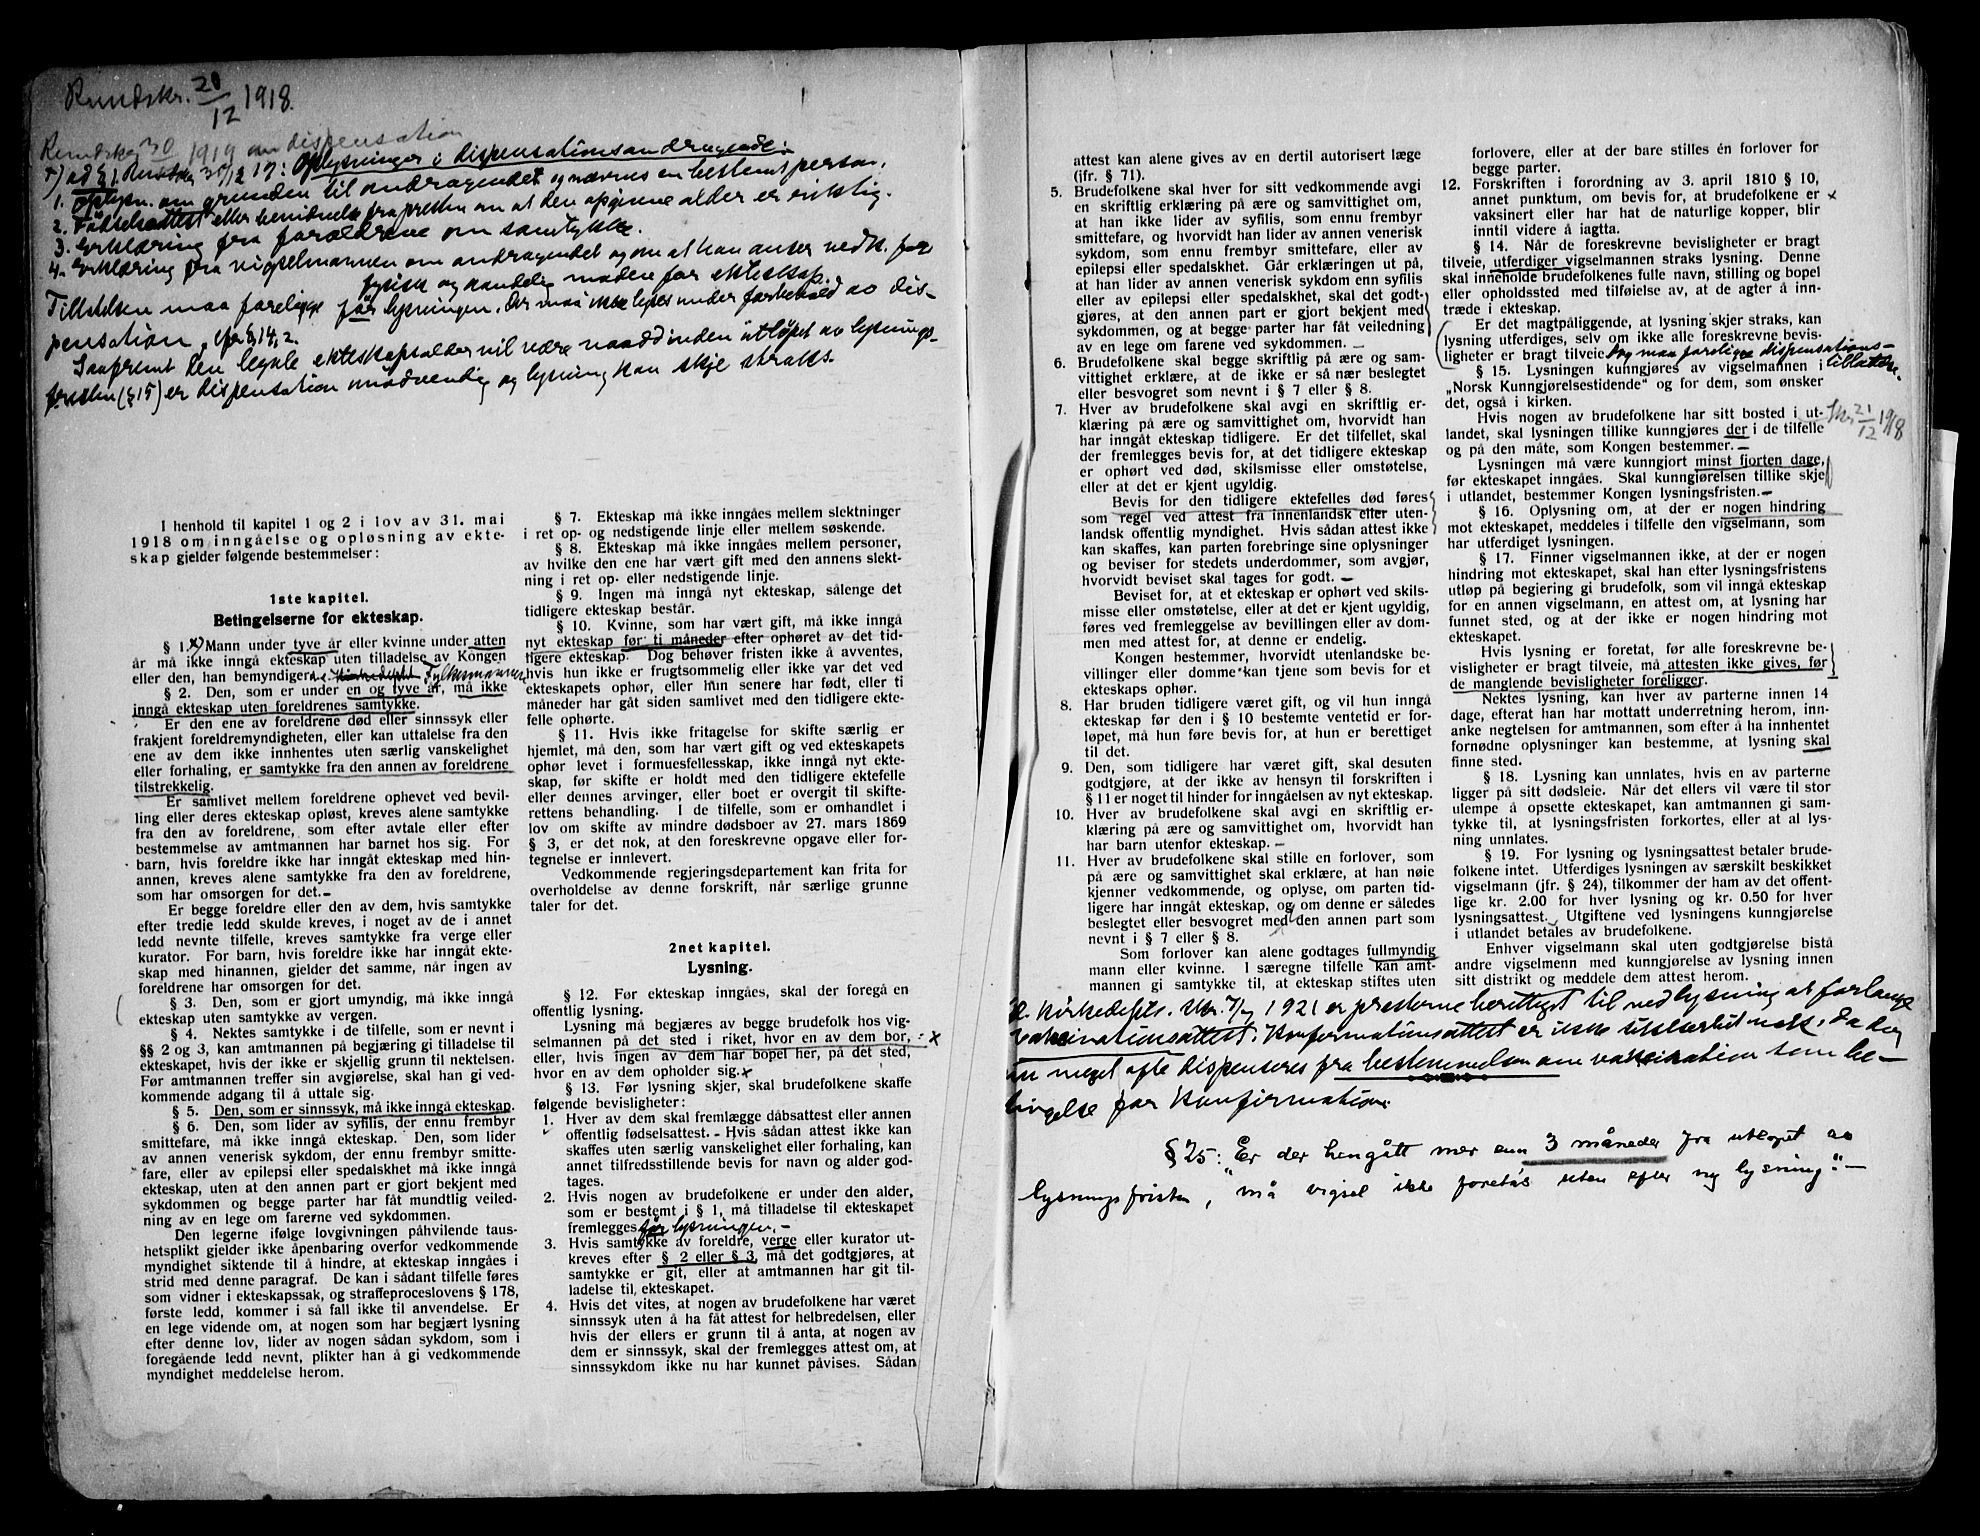 Rundskr. 20/12 1918.
Rundskr. 30/ 1919 om dispensation
x) ad § 1. Rundskr. 30/12 19: Oplysninger i dispensationsandragende:
1. Oplysn. om grunden til andragendet og nævnes en bestemt person.
2. Fødselsattest eller bevidnelse fra presten om at den opgivne alder er riktig.
3. Erklæring fra forældrene om samtykke.
4. Erklæring fra vigselmannen om andragendet og om at han anser vedk. for
fysisk og aandelig moden for ekteskap.
Tilladelsen maa foreligge før lysningen. Der maa ikke lyses under forbehold av dis-
pensation, jfr. § 14, 2.
Saafremt den legale ekteskapsalder vil være naadd inden utløpet av lysnings-
fristen (§ 15) er dispensation unødvendig og lysning kan skje straks.
I henhold til kapitel 1 og 2 i lov av 31. mai
1918 om inngåelse og opløsning av ekte-
skap gjelder følgende bestemmelser:
1ste kapitel.
Betingelserne for ekteskap.
§ 1. x) Mann under tyve år eller kvinne under atten
år må ikke inngå ekteskap uten tilladelse av Kongen
eller den, han bemyndiger. Kirkedeptet Fylkesmannen
§ 2. Den, som er under en og tyve år, må ikke
inngå ekteskap uten foreldrenes samtykke.
Er den ene av foreldrene død eller sinnssyk eller
frakjent foreldremyndigheten, eller kan uttalelse fra den
ene av dem ikke innhentes uten særlig vanskelighet
eller forhaling, er samtykke fra den annen av foreldrene
tilstrekkelig.
Er samlivet mellem foreldrene ophevet ved bevil-
ling eller deres ekteskap opløst, kreves alene samtykke
fra den av foreldrene, som efter avtale eller efter
bestemmelse av amtmannen har barnet hos sig. For
barn, hvis foreldre ikke har inngått ekteskap med hin-
annen, kreves alene samtykke fra den av foreldrene,
som har omsorgen for det.
Er begge foreldre eller den av dem, hvis samtykke
efter tredje ledd skulde kreves, i noget av de i annet
ledd nevnte tilfelle, kreves samtykke fra verge eller
kurator. For barn, hvis foreldre ikke har inngåt ekte-
skap med hinannen, gjelder det samme, når ingen av
foreldrene har omsorgen for det.
§ 3. Den, som er gjort umyndig, må ikke inngå
ekteskap uten samtykke av vergen.
§ 4. Nektes samtykke i de tilfelle, som er nevnt i
§§ 2 og 3, kan amtmannen på begjæring gi tilladelse til
ekteskapet, hvis der ikke er skjellig grunn til nektelsen.
Før amtmannen treffer sin avgjørelse, skal han gi ved-
kommende adgang til å uttale sig.
§ 5. Den, som er sinnssyk, må ikke inngå ekteskap.
§ 6. Den, som lider av syfilis, der ennu frembyr
smittefare, må ikke inngå ekteskap. Den, som lider
av annen venerisk sykdom, der ennu frembyr smitte-
fare, eller av epilepsi eller spedalskhet må ikke inngå
ekteskap, uten at den annen part er gjort bekjent med
sykdommen og begge parter har fåt mundtlig veiled-
ning av en lege om farerne ved sykdommen.
Den legerne ifølge lovgivningen påhvilende taus-
hetsplikt gjelder ikke åpenbaring overfor vedkommende
myndighet siktende til å hindre, at ekteskap inngåes i
strid med denne paragraf. De kan i sådant tilfelle føres
som vidner i ekteskapssak, og straffeproceslovens § 178,
første ledd, kommer i så fall ikke til anvendelse. Er
en lege vidende om, at nogen som har begjært lysning
efter denne lov, lider av nogen sådan sykdom, som i
foregående ledd nevnt, plikter han å gi vedkommende
myndighet meddelelse herom.
§ 7. Ekteskap må ikke inngåes mellem slektninger
i ret op- og nedstigende linje eller mellem søskende.
§ 8. Ekteskap må ikke inngåes mellem personer,
av hvilke den ene har vært gift med den annens slekt-
ning i ret op- eller nedstigende linje.
§ 9. Ingen må inngå nyt ekteskap, sålenge det
tidligere ekteskap består.
§ 10. Kvinne, som har vært gift, må ikke inngå
nyt ekteskap før ti måneder efter ophøret av det tid-
ligere ekteskap. Dog behøver fristen ikke å avventes,
hvis hun ikke er frugtsommelig eller ikke var det ved
ekteskapets ophør, eller hun senere har født, eller ti
måneder har gåt siden samlivet med den tidligere ekte-
felle ophørte.
§ 11. Hvis ikke fritagelse for skifte særlig er
hjemlet, må den, som har vært gift og ved ekteskapets
ophør levet i formuesfellesskap, ikke inngå nyt ekte-
skap, før skifte er holdt med den tidligere ektefelle
eller dennes arvinger, eller boet er overgit til skifte-
rettens behandling. I de tilfelle, som er omhandlet i
lov om skifte av mindre dødsboer av 27. mars 1869
§ 3, er det nok, at den foreskrevne opgave eller for-
tegnelse er innlevert.
Vedkommende regjeringsdepartement kan frita for
overholdelse av denne forskrift, når særlige grunne
taler for det.
2net kapitel.
Lysning.
§ 12. Før ekteskap inngåes, skal der foregå en
offentlig lysning.
Lysning må begjæres av begge brudefolk hos vig-
selmannen på det sted i riket, hvor en av dem bor, x
eller, hvis ingen av dem har bopel her, på det sted,
hvor en av dem opholder sig. x
§ 13. Før lysning skjer, skal brudefolkene skaffe
følgende bevisligheter:
1. Hver av dem skal fremlægge dåbsattest eller annen
offentlig fødselsattest. Hvis sådan attest ikke kan
skaffes uten særlig vanskelighet eller forhaling, kan
annet tilfredsstillende bevis for navn og alder god-
tages.
2. Hvis nogen av brudefolkene er under den alder,
som er bestemt i § 1, må tilladelse til ekteskapet
fremlegges før lysningen.
3. Hvis samtykke av foreldre, verge eller kurator ut-
kreves efter § 2 eller § 3, må det godtgjøres, at
samtykke er git, eller at amtmannen har git til-
ladelse til ekteskapet.
4. Hvis det vites, at nogen av brudefolkene har været
sinnssyk uten å ha fåt attest for helbredelsen, eller
hvis der ellers er grunn til å anta, at nogen av
dem er sinnssyk, skal der fremlegges attest om, at
sinnssykdom ikke nu har kunnet påvises. Sådan
attest kan alene gives av en dertil autorisert læge
(jfr. § 71).
5. Brudefolkene skal hver for sitt vedkommende avgi
en skriftlig erklæring på ære og samvittighet om,
at han ikke lider av syfilis, som ennu frembyr
smittefare, og hvorvidt han lider av annen venerisk
sykdom, som ennu frembyr smittefare, eller av
epilepsi eller spedalskhet. Går erklæringen ut på,
at han lider av annen venerisk sykdom enn syfilis
eller av epilepsi eller spedalskhet, skal det godt-
gjøres, at den annen part er gjort bekjent med
sykdommen, og at begge parter har fåt veiledning
av en lege om farene ved sykdommen.
6. Brudefolkene skal begge skriftlig på ære og sam-
vittighet erklære, at de ikke er så nær beslegtet
eller besvogret som nevnt i § 7 eller § 8.
7. Hver av brudefolkene skal avgi en skriftlig er-
klæring på ære og samvittighet om, hvorvidt han
har inngåt ekteskap tidligere. Er det tilfellet, skal
der fremlegges bevis for, at det tidligere ekteskap
er ophørt ved død, skilsmisse eller omstøtelse,
eller at det er kjent ugyldig.
Bevis for den tidligere ektefelles død føres
som regel ved attest fra innenlandsk eller uten-
landsk offentlig myndighet. Hvis sådan attest ikke
kan skaffes, kan parten forebringe sine oplysninger
og beviser for stedets underdommer, som avgjør,
hvorvidt beviset skal tages for godt.
Beviset for, at et ekteskap er ophørt ved skils-
misse eller omstøtelse, eller at det er kjent ugyldig,
føres ved fremleggelse av bevillingen eller av dom-
men med attest for, at denne er endelig.
Kongen bestemmer, hvorvidt utenlandske be-
villinger eller domme kan tjene som bevis for et
ekteskaps ophør.
8. Har bruden tidligere været gift, og vil hun inngå
ekteskap før den i § 10 bestemte ventetid er for-
løpet, må hun føre bevis for, at hun er berettiget
til det.
9. Den, som tidligere har været gift, skal desuten
godtgjøre, at der ikke av hensyn til forskriften i
§ 11 er noget til hinder for inngåelsen av nyt ekteskap.
10. Hver av brudefolkene skal avgi en skriftlig er-
klæring på ære og samvittighet om, hvorvidt han
har barn utenfor ekteskap.
11. Hver av brudefolkene skal stille en forlover, som
på ære og samvittighet skal erklære, at han nøie
kjenner vedkommende, og oplyse, om parten tid-
ligere har inngåt ekteskap, og om denne er således
beslegtet eller besvogret med den annen part som
nevnt i § 7 eller § 8.
Som forlover kan alene godtages fullmyndig
mann eller kvinne. I særegne tilfelle kan amt-
mannen gi samtykke til, at ekteskap stiftes uten
forlovere, eller at der bare stilles én forlover for
begge parter.
12. Forskriften i forordning av 3. april 1810 § 10,
annet punktum, om bevis for, at brudefolkene er x
vaksinert eller har hat de naturlige kopper, blir
inntil videre å iagtta.
§ 14. Når de foreskrevne bevisligheter er bragt
tilveie, utferdiger vigselmannen straks lysning. Denne
skal inneholde brudefolkenes fulle navn, stilling og bopel
eller opholdssted med tilføielse av, at de agter å inn-
træde i ekteskap.
Er det magtpåliggende, at lysning skjer straks, kan
lysning utferdiges, selv om ikke alle foreskrevne bevis-
ligheter er bragt tilveie. Dog maa foreligge dispensations-
tilladelse.
§ 15. Lysningen kunngjøres av vigselmannen i
„Norsk Kunngjørelsestidende“ og for dem, som ønsker
det, også i kirken.
Hvis nogen av brudefolkene har sitt bosted i ut- Skr. 21/12 1918
landet, skal lysningen tillike kunngjøres der i de tilfelle
og på den måte, som Kongen bestemmer.
Lysningen må være kunngjort minst fjorten dage,
før ekteskapet inngåes. Skal kunngjørelsen tillike skje
i utlandet, bestemmer Kongen lysningsfristen.
§ 16. Oplysning om, at der er nogen hindring
mot ekteskapet, meddeles i tilfelle den vigselmann, som
har utferdiget lysningen.
§ 17. Finner vigselmannen ikke, at der er nogen
hindring mot ekteskapet, skal han efter lysningsfristens
utløp på begjering gi brudefolk, som vil inngå ekteskap
for en annen vigselmann, en attest om, at lysning har
funnet sted, og at der ikke er nogen hindring mot
ekteskapet.
Hvis lysning er foretat, før alle foreskrevne be-
visligheter er bragt tilveie, må attesten ikke gives, før
de manglende bevisligheter foreligger.
Nektes lysning, kan hver av parterne innen 14
dage, efterat han har mottatt underretning herom, inn-
anke negtelsen for amtmannen, som efter å ha innhentet
fornødne oplysninger kan bestemme, at lysning skal
finne sted.
§ 18. Lysning kan unnlates, hvis en av parterne
ligger på sitt dødsleie. Når det ellers vil være til stor
ulempe å opsette ekteskapet, kan amtmannen gi sam-
tykke til, at lysningsfristen forkortes, eller at al lys-
ning unnlates.
§ 19. For lysning og lysningsattest betaler brude-
folkene intet. Utferdiges lysningen av særskilt beskikket
vigselmann (jfr. § 24), tilkommer der ham av det offent-
lige kr. 2.00 for hver lysning og kr. 0.50 for hver
lysningsattest. Utgiftene ved lysningens kunngjørelse
i utlandet betales av brudefolkene.
Enhver vigselmann skal uten godtgjørelse bistå
andre vigselmenn med kunngjørelse av lysning innen
sitt distrikt og meddele dem attest herom.
Kirkedepts. skr. 7/ 1921 er presterne berettiget til ved lysning at forlange
vakcinationsattest. Konfirmationsattest er ikke tilstrækkelig, da der
nu meget ofte dispenseres fra bestemmelsen om vakcination som be-
tingelse for konfirmation.
§ 25: „Er der hengått mer enn 3 måneder fra utløpet av
lysningsfristen, må vigsel ikke foretas uten efter ny lysning“.